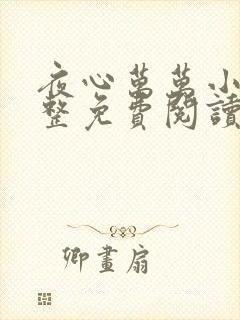 夜心萬萬小
整免費閱讀
卿畫扇